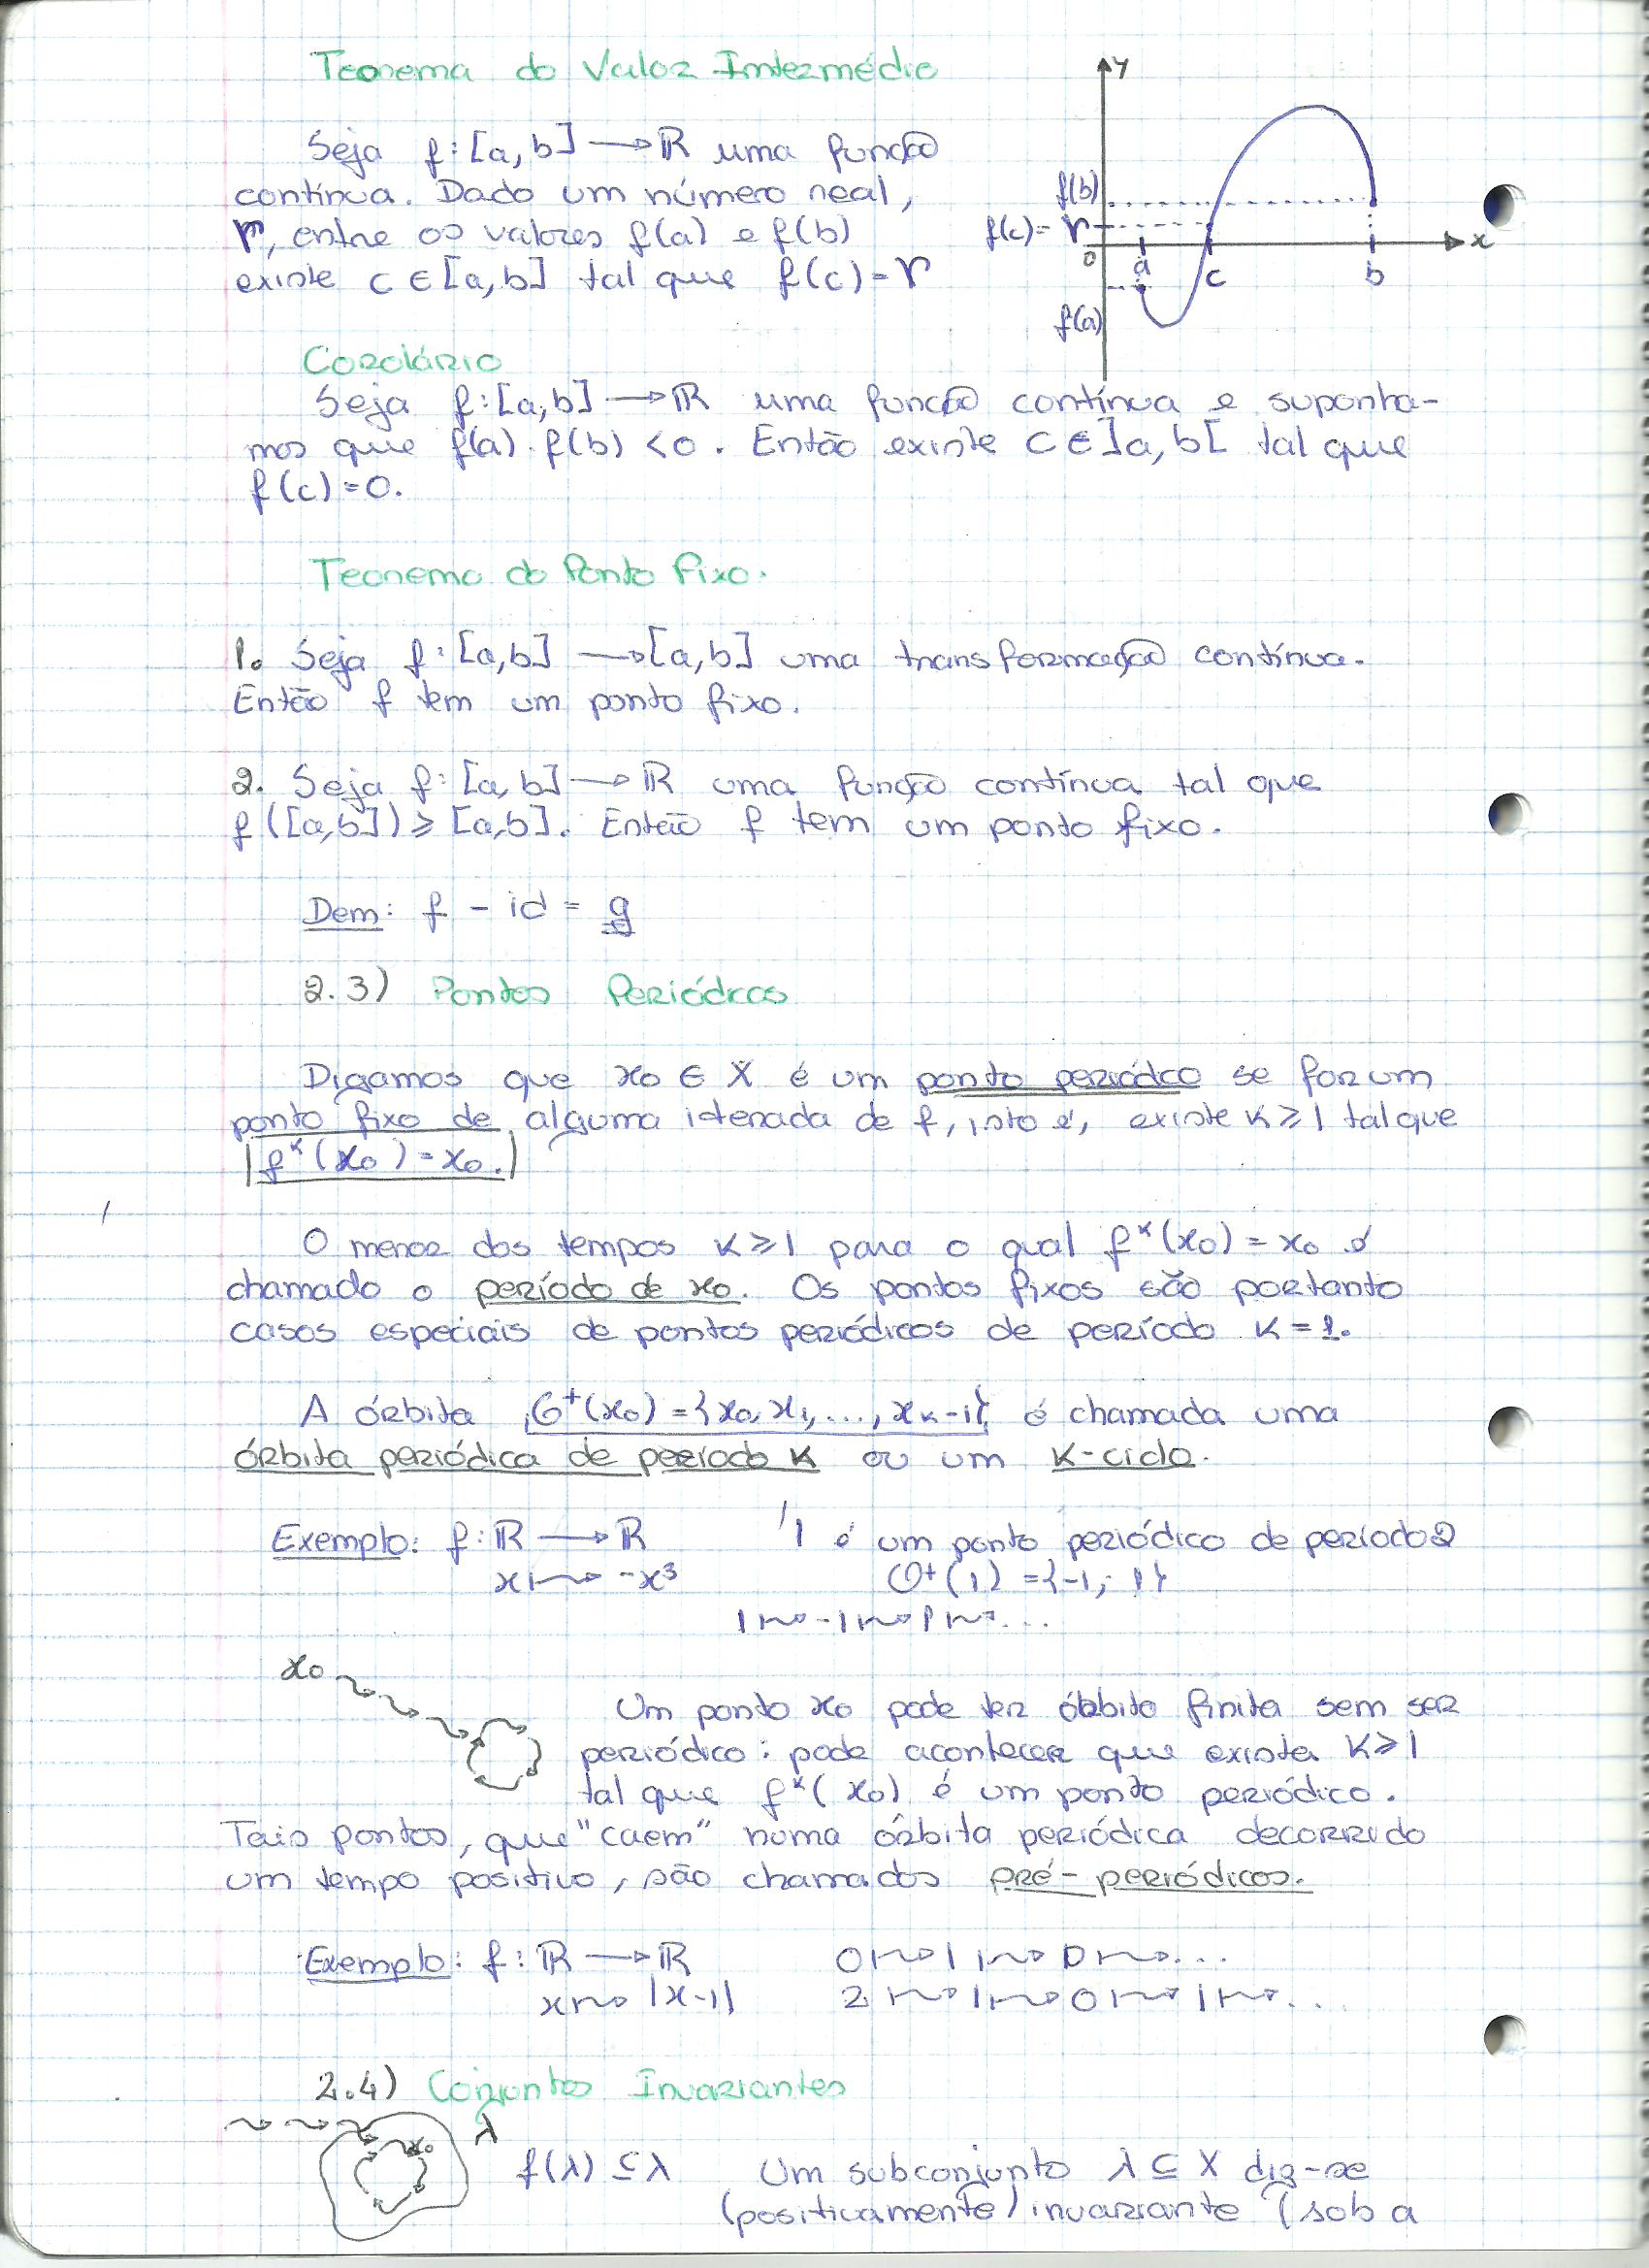 Teorema do Valor Intermédio
Seja f:[a,b] → ℝ uma função
contínua. Dado um número real,
r, entre os valores f(a) e f(b)
existe c ∈ [a,b] tal que f(c)=r
y
f(b)
f(c)= r
0 a c b x
f(a)
Corolário
Seja f:[a,b] → ℝ uma função contínua e suponha-
mos que f(a).f(b) <0. Então existe c ∈ ]a,b[ tal que
f(c)=0.
Teorema do Ponto Fixo.
1. Seja f:[a,b] → [a,b] uma transformação contínua.
Então f tem um ponto fixo.
2. Seja f:[a,b] → ℝ uma função contínua tal que
f([a,b]) ≥ [a,b]. Então f tem um ponto fixo.
Dem: f - id = g
2.3) Pontos Periódicos
Digamos que x₀ ∈ X é um ponto periódico se for um
ponto fixo de alguma iterada de f, isto é, existe k ≥ 1 tal que
|fᵏ(x₀)=x₀.|
O menor dos tempos k ≥ 1 para o qual fᵏ(x₀) = x₀ é
chamado o período de x₀. Os pontos fixos são portanto
casos especiais de pontos periódicos de período k = 1.
A órbita O⁺(x₀) = {x₀, x₁, ..., xₖ₋₁} é chamada uma
órbita periódica de período k ou um k-ciclo.
Exemplo: f: ℝ → ℝ 1 é um ponto periódico de período 2
x ↦ -x³ O⁺(1) = {-1, 1}
1 ↦ -1 ↦ 1 ↦ ...
x₀
Um ponto x₀ pode ter órbita finita sem ser
periódico: pode acontecer que exista k ≥ 1
tal que fᵏ(x₀) é um ponto periódico.
Tais pontos, que "caem" numa órbita periódica decorrido
um tempo positivo, são chamados pré-periódicos.
Exemplo: f: ℝ → ℝ 0 ↦ 1 ↦ 0 ↦ ...
x ↦ |x-1| 2 ↦ 1 ↦ 0 ↦ 1 ↦ ...
2.4) Conjuntos Invariantes
x₀ λ
f(λ) ⊆ λ Um subconjunto λ ⊆ X diz-se
(positivamente) invariante (sob a